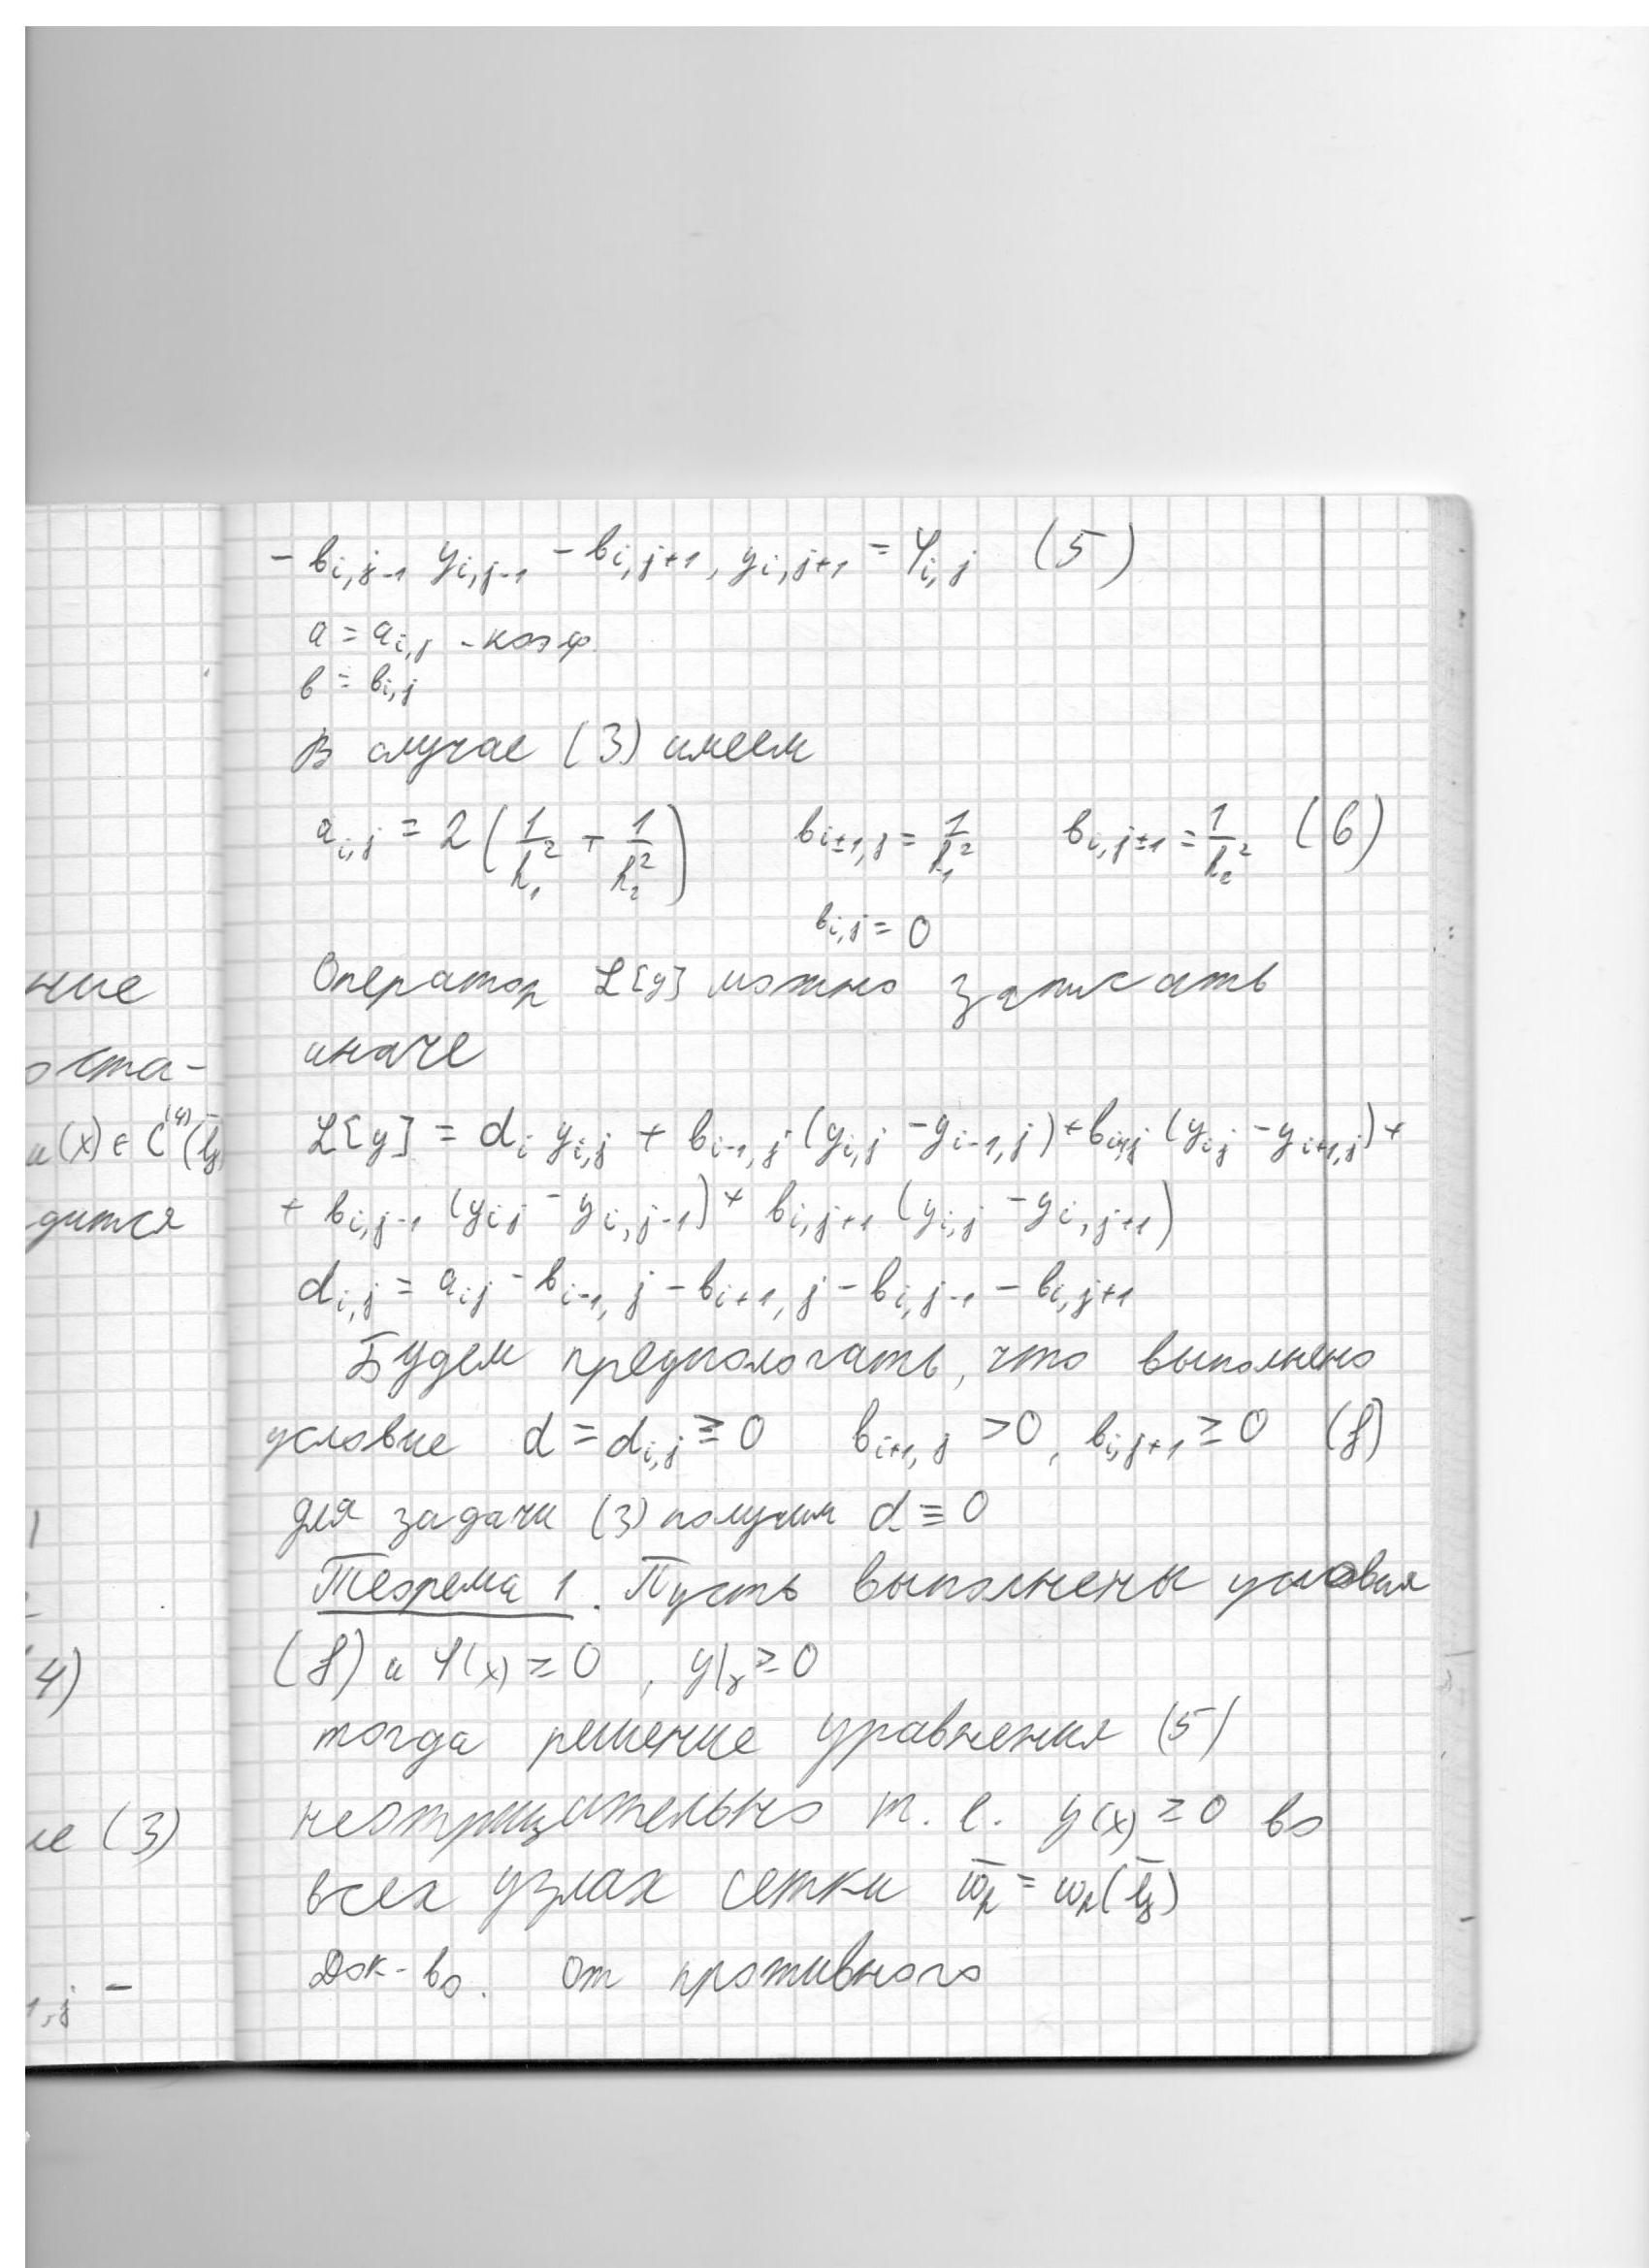 - b_{i,j-1} y_{i,j-1} - b_{i,j+1}, y_{i,j+1} = φ_{i,j} (5)
a = a_{i,j} - коэф.
b = b_{i,j}
В случае (3) имеем
a_{i,j} = 2(1/h_1^2 + 1/h_2^2) b_{i±1,j} = 1/h_1^2 b_{i,j±1} = 1/h_2^2 (6)
b_{i,j} = 0
Оператор L[y] можно записать
иначе
L[y] = d_i y_{i,j} + b_{i-1,j}(y_{i,j} - y_{i-1,j}) + b_{i+1,j}(y_{ij} - y_{i+1,j}) +
+ b_{i,j-1}(y_{ij} - y_{i,j-1}) + b_{i,j+1}(y_{i,j} - y_{i,j+1})
d_{i,j} = a_{ij} - b_{i-1,j} - b_{i+1,j} - b_{i,j-1} - b_{i,j+1}
Будем предпологать, что выполнено
условие d = d_{i,j} ≥ 0 b_{i+1,j} > 0, b_{i,j+1} ≥ 0 (8)
для задачи (3) получим d ≡ 0
Теорема 1. Пусть выполнены условия
(8) и φ(x) ≥ 0, y|_γ ≥ 0
тогда решение уравнения (5)
неотрицательно т. е. y(x) ≥ 0 во
всех узлах сетки
Док-во. От противного
ние
оста-
u(x) ∈ C^{(4)}
дится
4)
ие (3)
1,j -